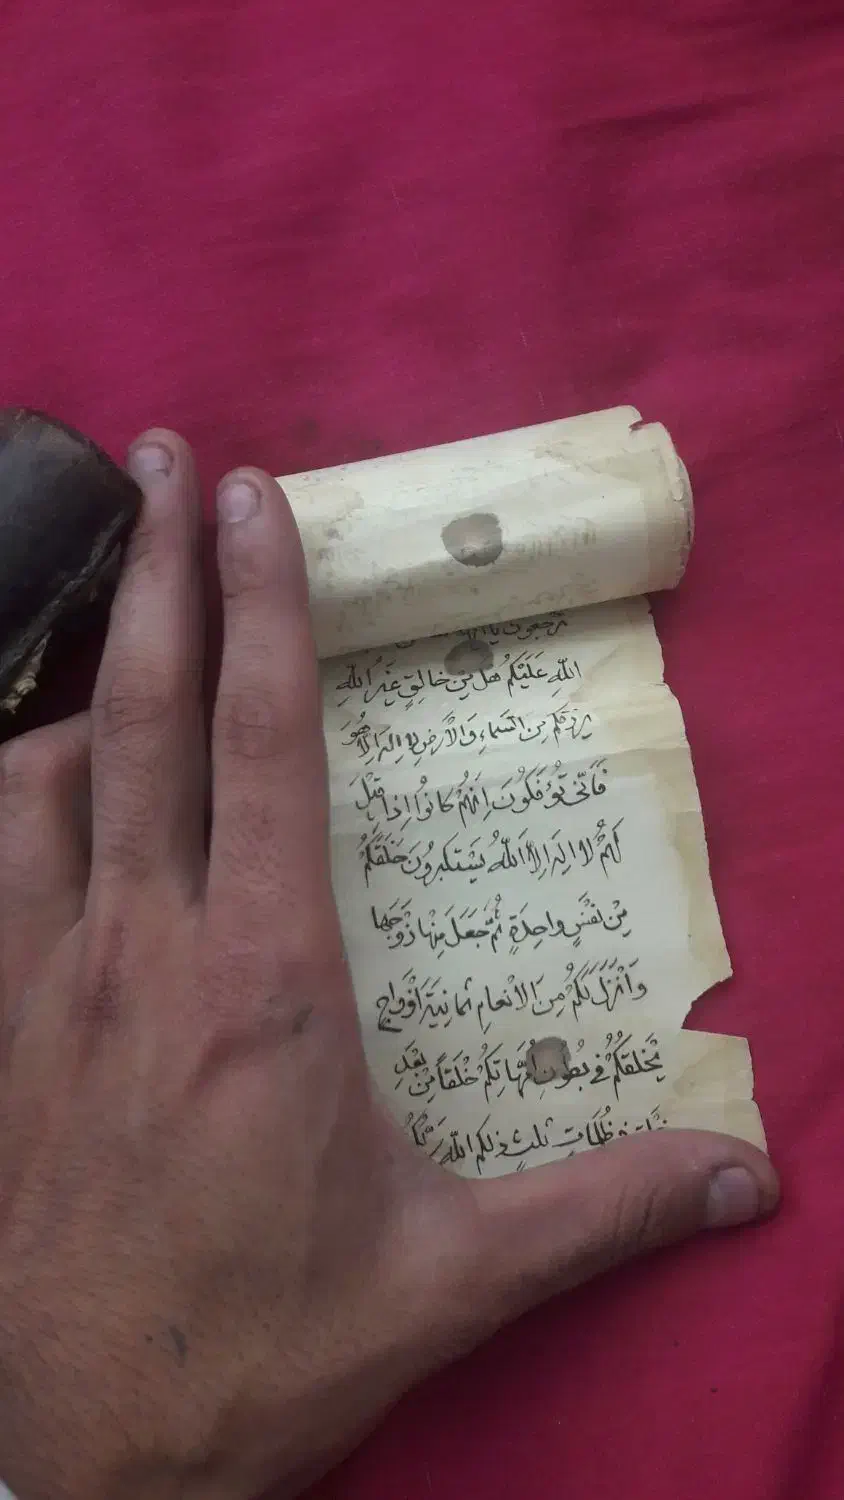 ترجعون يا أيها
اللهِ عَلَيْكُمْ هَلْ مِنْ خَالِقٍ غَيْرُ اللهِ
يرزقكم مِن السَماءِ وَالأَرْضِ لا اِلهَ اِلاَّ هُوَ
فَأَنّى تُؤفَكُونَ اِنَهُمْ كَانُوا اِذَا قِيْلَ
لَهُمْ لا اِلهَ اِلاَّ اللهُ يَسْتَكبِرُونَ خَلَقَكُمْ
مِنْ نَفْسٍ واحِدَةٍ ثُمَّ جَعَلَ مِنْها زَوْجَها
وَأَنْزَلَ لَكُمْ مِنَ الأَنْعامِ ثمانِيَةَ أَزْواجٍ
يَخْلقكُمْ في بُطُونِ أُمَّهاتِكُمْ خَلْقَاً مِنْ بَعْدِ
خَلْقٍ في ظُلُمَاتٍ ثلثٍ ذلكم اللهُ رَبُّكُمْ